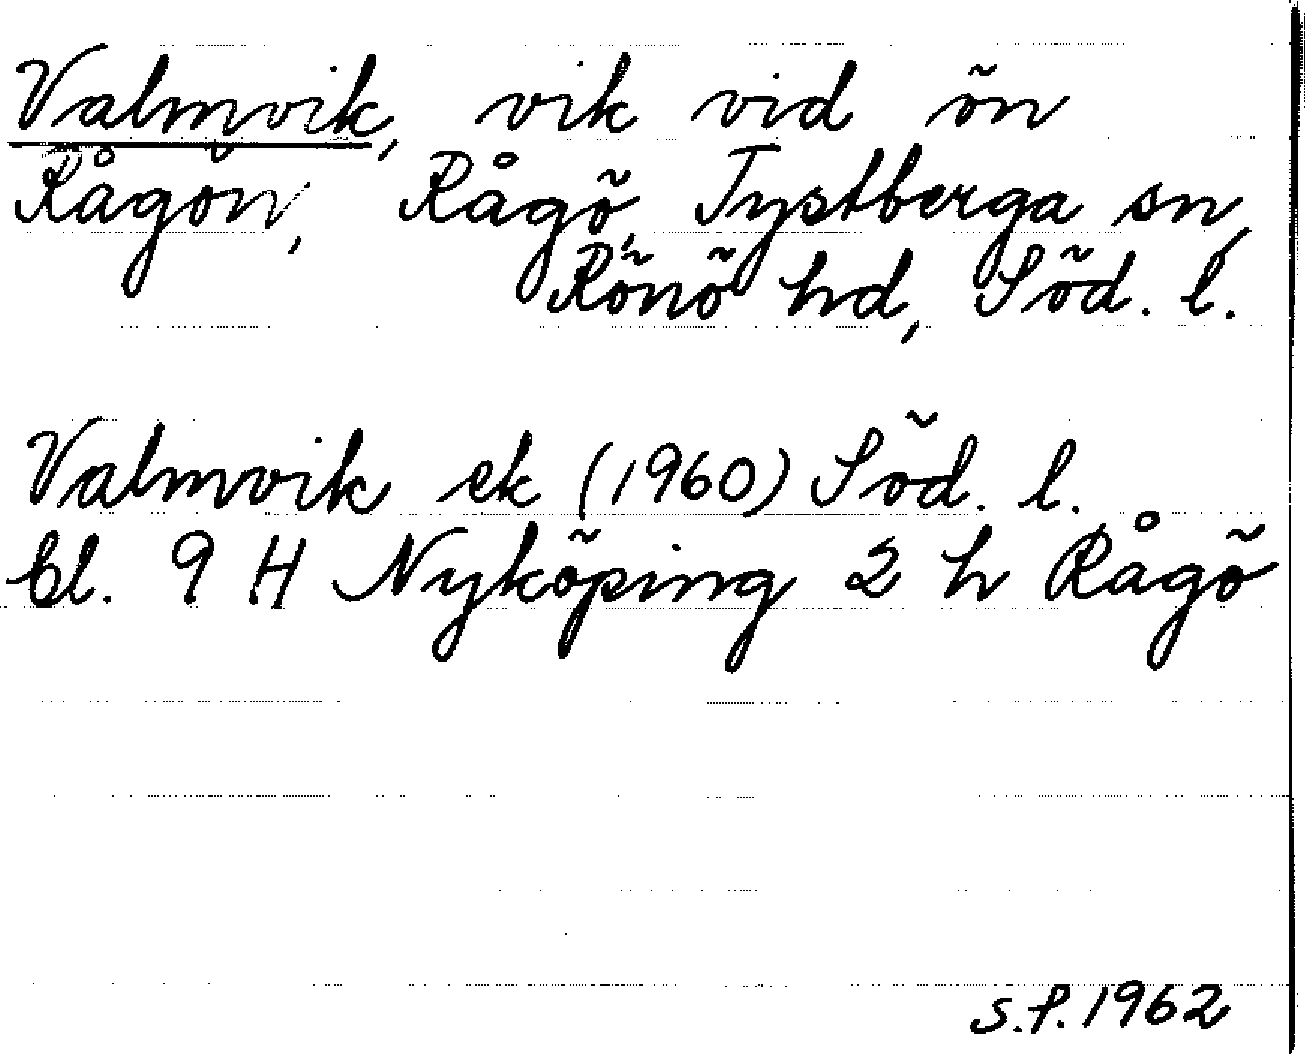 Valmvik, vik vid ön
Rågön, Rågö, Tystberga sn,
Rönö hd, Söd. l.
Valmvik ek (1960) Söd. l.
bl. 9 H Nyköping 2 h Rågö
S.P. 1962